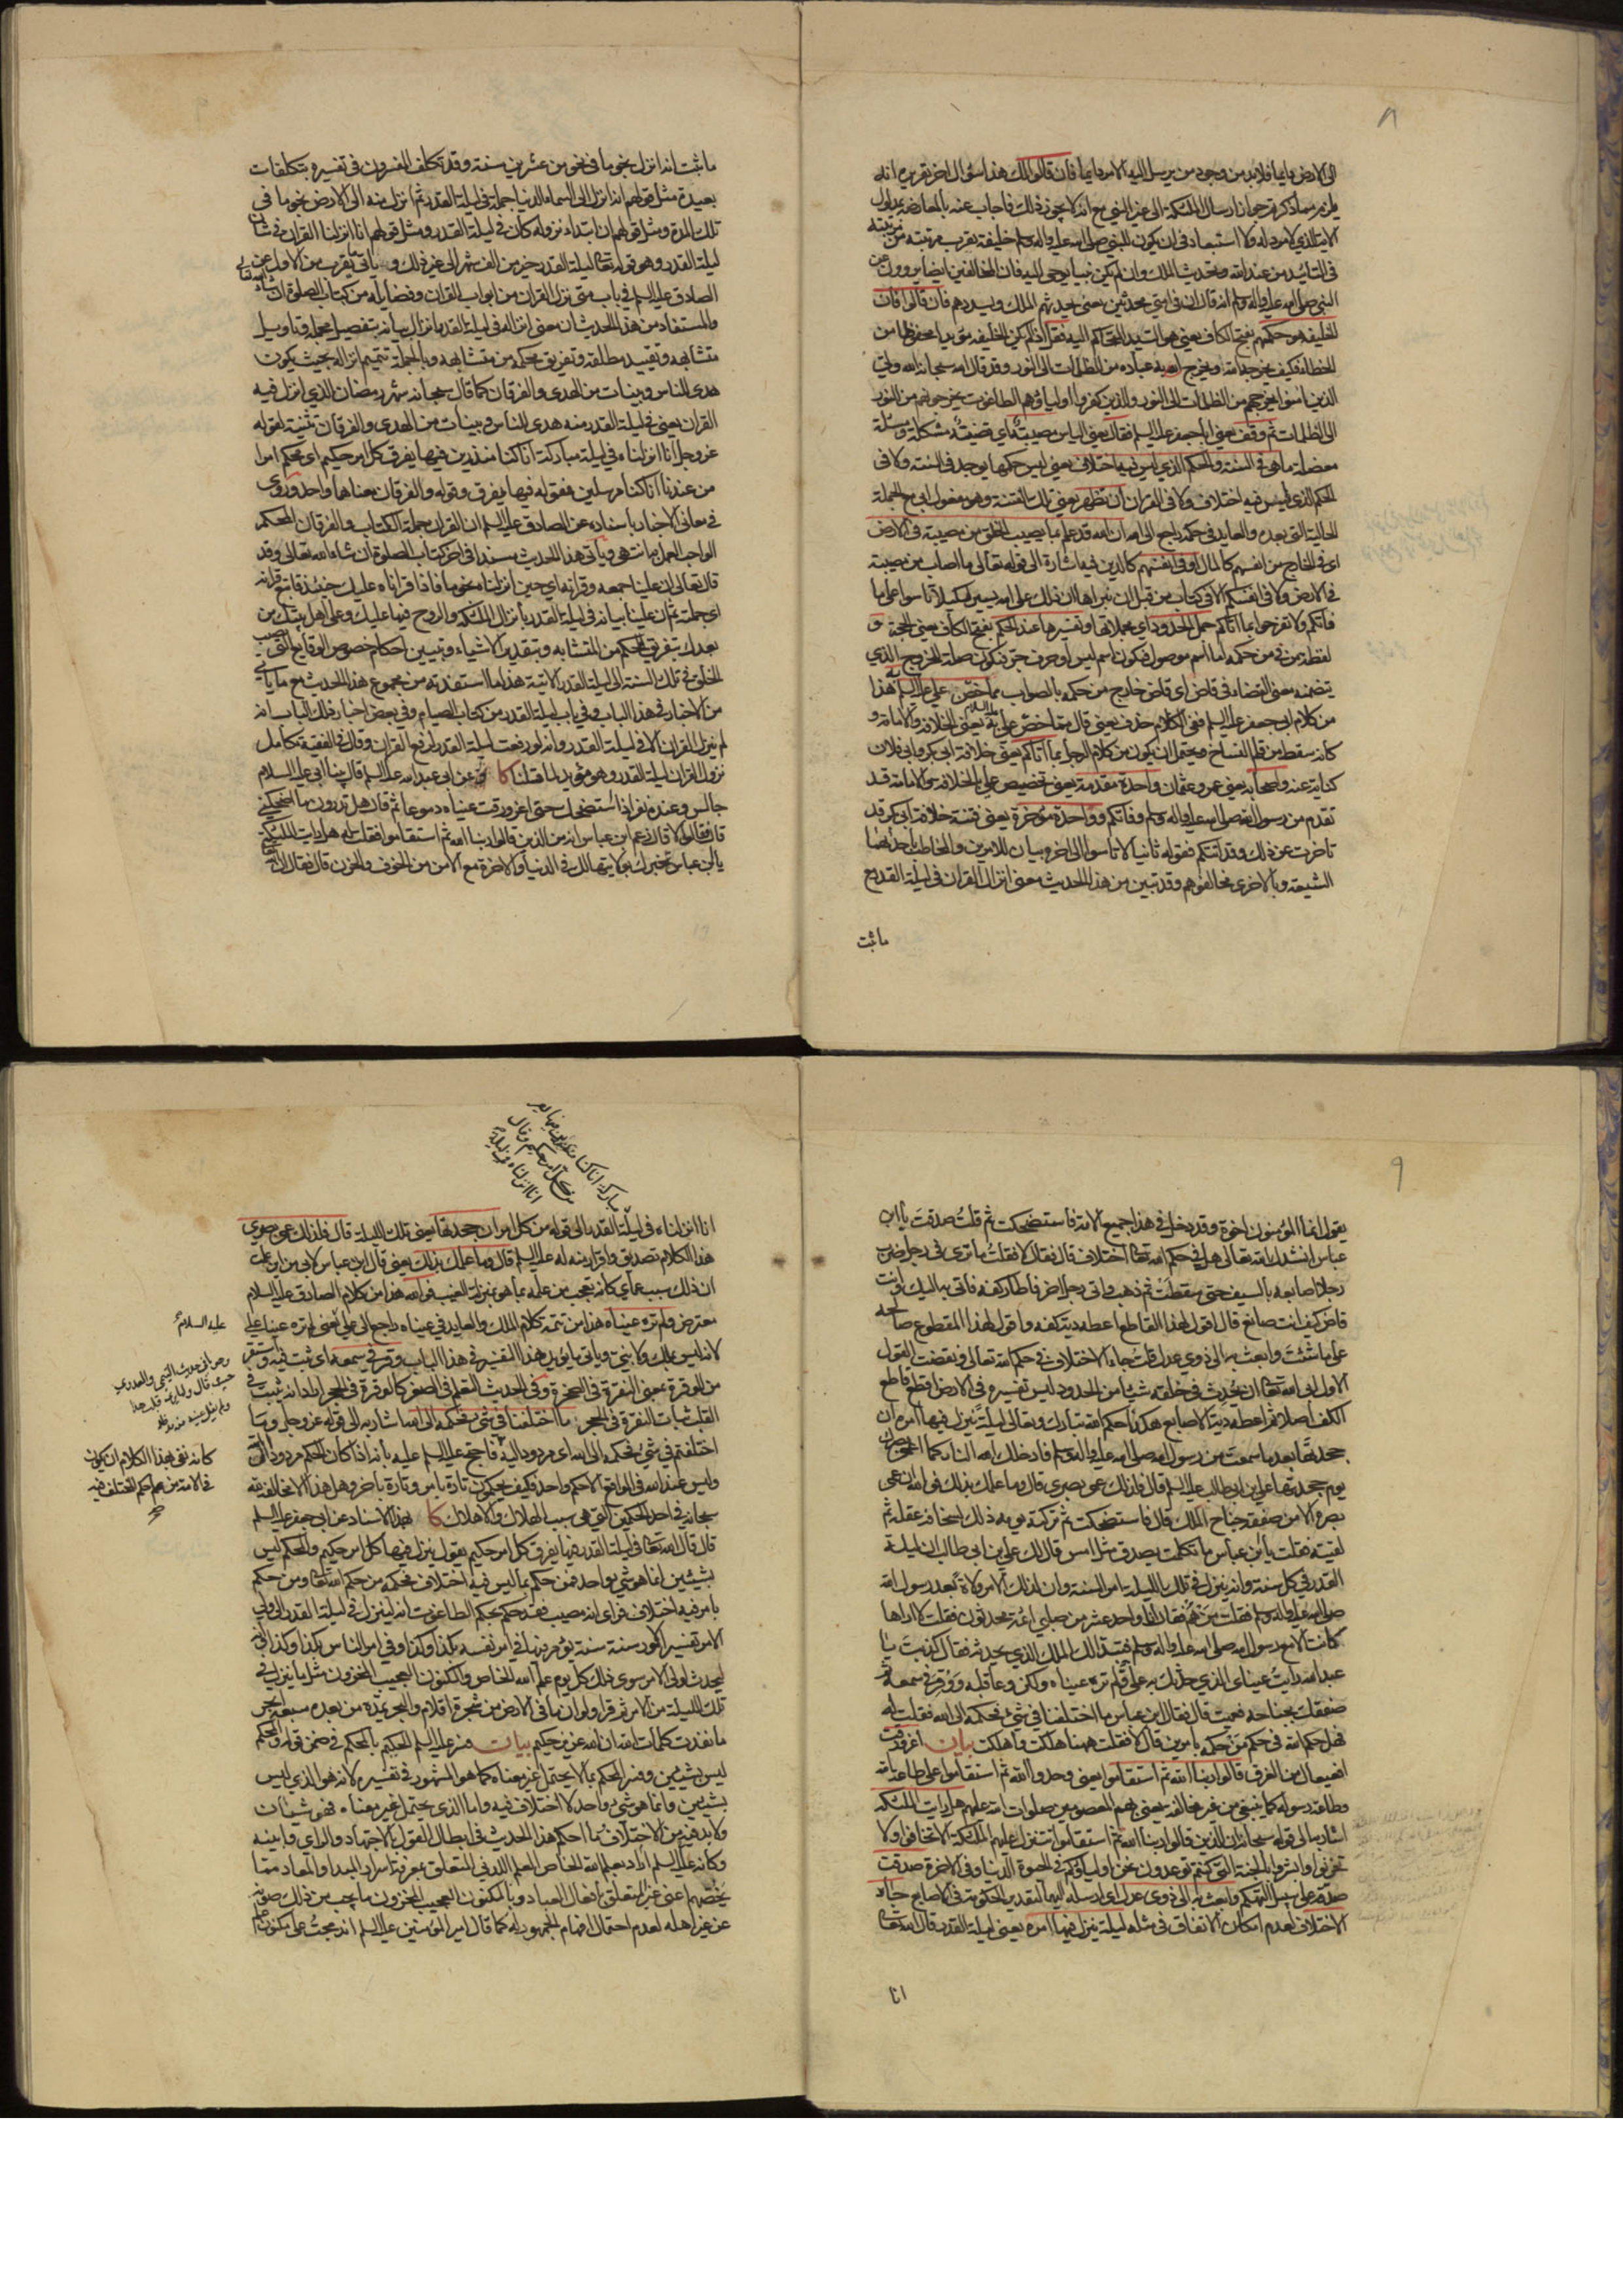 ٨
الى الارض دايما فلابد من وجود من يرسل اليه الامر دايما فان قالوا لك هذا سؤال اخر تقريره انه
يلزم مما ذكرتم جواز ارسال الملئكة الى غير النبي مع انه لا يجوز ذلك فاجاب عنه بالمعارضة بمدلول
الاية الذي لا مرد له ولا استبعاد في ان يكون للنبي صلى الله عليه واله وسلم خليفة يقرب مرتبته من مرتبته
في التأييد من عند الله وتحديث الملك وان لم يكن نبيا يوحى اليه فان المخالفين ايضا يروون عن
النبي صلى الله عليه واله وسلم انه قال ان في امتي محدثين يعني يحدثهم الملك ويسددهم فان قالوا فان
الخليفة هو حكمهم بفتح الكاف يعني هو السيد المتحاكم اليه فقل اذا لم يكن الخليفة مؤيدا محفوظا من
الخطا فكيف يخرجه الله ويخرج به عباده من الظلمات الى النور وقد قال الله سبحانه الله ولي
الذين امنوا يخرجهم من الظلمات الى النور والذين كفروا اولياؤهم الطاغوت يخرجونهم من النور
الى الظلمات ثم وقف يعني ابا جعفر عليه السلم فقال يعني الياس مصيبة اي قضية مشكلة ومسئلة
معضلة ما هي في السنة والحكم الذي ليس فيه اختلاف يعني ليس حكمها يوجد في السنة ولا في
الحكم الذي ليس فيه اختلاف ولا في القران ان تظهر يعني تلك الفتنة وهو مفعول ابى مع الجملة
الحالية التي بعده والعايد في حكمه راجع الى الله ان الله قد علم بما يصيب الخلق من مصيبة في الارض
اي في الخارج من انفسهم كالمال او في انفسهم كالدين فيه اشارة الى قوله تعالى ما اصاب من مصيبة
في الارض ولا في انفسكم الا في كتاب من قبل ان نبراها ان ذلك على الله يسير لكيلا تاسوا على ما
فاتكم ولا تفرحوا بما اتاكم جمل الحدود اي مجملاتها وتفسيرها عند الحكم بفتح الكاف يعني الحجة و
لفظة من في من حكمه اما اسم موصول فتكون اسم ليس او حرف جر فتكون صلة للخروج الذي
يتضمنه معنى القضاء في قاض اي قاض خارج من حكمه بالصواب مما خص علي عليه السلم هذا
من كلام ابي جعفر عليه السلم ففي الكلام حذف يعني قال مما خص علي به يعني الخلافة والامامة و
كانه سقط من قلم النساخ ويحتمل ان يكون من كلام الرجل بما اتاكم يعني خلافة ابي بكر وابي فلان
كناية عنه واصحابه يعني عمر وعثمان واحدة مقدمة يعني تخصيص علي بالخلافة والامامة قد
تقدم من رسول الله صلى الله عليه واله وسلم وفاتكم وواحدة مؤخرة يعني فتنة خلافة ابي بكر قد
تاخرت عن ذلك وقد اتتكم فقوله ثانيا لا تاسوا الى اخره بيان للامرين والمخاطب باحداهما
الشيعة وبالاخرى مخالفوهم وقد تبين من هذا الحديث معنى انزال القران في ليلة القدر مع
ما ثبت
ما ثبت انه انزل نجوما في نحو من عشرين سنة وقد تكلف المفسرون في تفسيره بتكلفات
بعيدة مثل قولهم انه انزل الى السماء الدنيا جملة في ليلة القدر ثم انزل منه الى الارض نجوما في
تلك المدة ومثل قولهم ان ابتداء نزوله كان في ليلة القدر ومثل قولهم انا انزلنا القران في شان
ليلة القدر وهو قوله تعالى ليلة القدر خير من الف شهر الى غير ذلك وياتي ما يقرب من الاول عن
الصادق عليه السلم في باب متى نزل القران من ابواب القران وفضايله من كتاب الصلوة ان شاء الله تعالى
والمستفاد من هذا الحديث ان معنى انزاله في ليلة القدر انزال بيانه بتفصيل مجمله وتاويل
متشابهه وتقييد مطلقه وتفريق محكمه من متشابهه وبالجملة تتميم انزاله بحيث يكون
هدى للناس وبينات من الهدى والفرقان كما قال سبحانه شهر رمضان الذي انزل فيه
القران يعني في ليلة القدر منه هدى للناس وبينات من الهدى والفرقان تثنية لقوله
عز وجل انا انزلناه في ليلة مباركة انا كنا منذرين فيها يفرق كل امر حكيم اي محكم امرا
من عندنا انا كنا مرسلين فقوله فيها يفرق وقوله والفرقان معناهما واحد وروى
في معاني الاخبار باسناده عن الصادق عليه السلم ان القران جملة الكتاب والفرقان المحكم
الواجب العمل به انتهى وياتي هذا الحديث مسندا في اخر كتاب الصلوة ان شاء الله تعالى وقد
قال تعالى ان علينا جمعه وقرانه اي حين انزلناه نجوما فاذا قراناه عليك حينئذ فاتبع قرانه
اي جملته ثم ان علينا بيانه في ليلة القدر بانزال الملئكة والروح فيها عليك وعلى اهل بيتك من
بعدك بتفريق المحكم من المتشابه وبتقدير الاشياء وتبيين احكام خصوص الوقايع التي تصيب
الخلق في تلك السنة الى ليلة القدر الاتية هذا ما استفدته من مجموع هذا الحديث مع ما ياتي
من الاخبار في هذا الباب وفي باب ليلة القدر من كتاب الصيام وفي بعض اخبار ذلك الباب انه
لم ينزل القران الا في ليلة القدر وانه لو رفعت ليلة القدر لرفع القران وقال في الفقيه تكامل
نزول القران ليلة القدر وهو مؤيد لما قلنا كا وعن ابي عبد الله عليه السلم قال بينا ابي عليه السلام
جالس وعنده نفر اذا استضحك حتى اغرورقت عيناه دموعا ثم قال هل تدرون ما اضحكني
قال فقالوا لا قال زعم ابن عباس انه من الذين قالوا ربنا الله ثم استقاموا فقلت له هل رايت الملئكة
يا بن عباس تخبرك بولايتها لك في الدنيا والاخرة مع الامن من الخوف والحزن قال فقال ان الله تعالى
٩
يقول انما المؤمنون اخوة وقد دخل في هذا جميع الامة فاستضحكت ثم قلت صدقت يا ابن
عباس انشدك الله تعالى هل في حكم الله تعالى اختلاف قال فقال لا فقلت ما ترى في رجل ضرب
رجلا اصابعه بالسيف حتى سقطت ثم ذهب واتى رجل اخر فاطار كفه فاتي به اليك وانت
قاض كيف انت صانع قال اقول لهذا القاطع اعطه دية كفه واقول لهذا المقطوع صالحه
على ما شئت وابعث به الى ذوي عدل قلت جاء الاختلاف في حكم الله تعالى ونقضت القول
الاول ابى الله تعالى ان يحدث في خلقه شيئا من الحدود ليس تفسيره في الارض اقطع قاطع
الكف اصلا ثم اعطه دية الاصابع هكذا حكم الله تبارك وتعالى ليلة ينزل فيها امره ان
جحدتها بعد ما سمعت من رسول الله صلى الله عليه واله وسلم فادخلك الله النار كما اعمى بصرك
يوم جحدتها علي بن ابي طالب عليه السلم قال فلذلك عمي بصري قال وما علمك بذلك فوالله ان عمي
بصره الا من صفقة جناح الملك قال فاستضحكت ثم تركته يومه ذلك لسخافة عقله ثم
لقيته فقلت يا بن عباس ما تكلمت بصدق مثل امس قال لك علي بن ابي طالب ان ليلة
القدر في كل سنة وانه ينزل في تلك الليلة امر السنة وان لذلك الامر ولاة بعد رسول الله
صلى الله عليه واله وسلم فقلت من هم فقال انا واحد عشر من صلبي ائمة محدثون فقلت لا اراها
كانت الا مع رسول الله صلى الله عليه واله وسلم فتبدا لك الملك الذي يحدثه فقال كذبت يا
عبد الله رايت عيناي الذي حدثك به علي ولم تره عيناه ولكن وعا قلبه ووقر في سمعه ثم
صفقك بجناحه فعميت قال فقال ابن عباس ما اختلفنا في شيء فحكمه الى الله فقلت له
فهل حكم الله في حكم من حكمه بامرين قال لا فقلت ههنا هلكت واهلكت بيان اغرورقت
افعيعال من الغرق قالوا ربنا الله ثم استقاموا يعني وحدوا الله ثم استقاموا على طاعة الله
وطاعة رسوله كما ينبغي من غير مخالفة يعني بهم المعصومين صلوات الله عليهم هل رايت الملئكة
اشار به الى قوله سبحانه ان الذين قالوا ربنا الله ثم استقاموا تتنزل عليهم الملئكة الا تخافوا ولا
تحزنوا وابشروا بالجنة التي كنتم توعدون نحن اولياؤكم في الحيوة الدنيا وفي الاخرة صدقت
صدقه على سبيل التهكم وابعث به الى ذوي عدل اي ارسله اليهما لتقدير الحكومة في الاصابع جاء
الاختلاف لعدم امكان الاتفاق في مثله ليلة ينزل فيها امره يعني ليلة القدر قال الله تعالى
انا
انا انزلناه في ليلة
مباركة انا كنا منذرين فيها يفرق
كل امر حكيم وقال
انا انزلناه في ليلة القدر الى قوله من كل امر ان جحدتها يعني تلك الليلة قال فلذلك عمي بصري
هذا الكلام تصديق واقرار منه له عليه السلم قال وما علمك بذلك يعني قال ابن عباس لابي من اين علمت
ان ذلك سبب عماي كانه تعجب من علمه بما هو بمنزلة الغيب فوالله هذا من كلام الصادق عليه السلام
معترض ولم تره عيناه هذا من تتمة كلام الملك والعايد في عيناه راجع الى علي يعني لم تره عينا علي
عليه السلام
لانه ليس بملك ولا نبي وياتي ما يؤيد هذا التفسير في هذا الباب وقر في سمعه اي ثبت فيه واستقر
من الوقرة بمعنى النقرة في الصخرة وفي الحديث التعلم في الصغر كالوقرة في الحجر اراد انه يثبت في
القلب ثبات النقرة في الحجر ما اختلفنا في شيء فحكمه الى الله اشار به الى قوله عز وجل وما
اختلفتم في شيء فحكمه الى الله اي مردود اليه فاحتج عليه السلم عليه بانه اذا كان الحكم مردودا الى الله
وليس عند الله في الواقع الا حكم واحد فكيف يحكمون تارة بامر وتارة باخر وهل هذا الا مخالفة لله
سبحانه في احد الحكمين التي هي سبب الهلاك والاهلاك كا بهذا الاسناد عن ابي جعفر عليه السلم
كانه نفى بهذا الكلام ان يكون
في الامة من علم حكم المختلف فيه
قال قال الله تعالى في ليلة القدر فيها يفرق كل امر حكيم يقول ينزل فيها كل امر حكيم والمحكم ليس
بشيئين انما هو شيء واحد فمن حكم بما ليس فيه اختلاف فحكمه من حكم الله تعالى ومن حكم
بامر فيه اختلاف فراى انه مصيب فقد حكم بحكم الطاغوت انه لينزل في ليلة القدر الى ولي
الامر تفسير الامور سنة سنة يؤمر فيها في امر نفسه بكذا وكذا وفي امر الناس بكذا وكذا وانه
ليحدث لولي الامر سوى ذلك كل يوم علم الله الخاص والمكنون العجيب المخزون مثل ما ينزل في
تلك الليلة من الامر ثم قرا ولو ان ما في الارض من شجرة اقلام والبحر يمده من بعده سبعة ابحر
ما نفدت كلمات الله ان الله عزيز حكيم بيان فسر عليه السلم الحكيم بالمحكم في ضمن قوله والمحكم
ليس بشيئين وفسر المحكم بما لا يحتمل غير معناه كما هو المشهور في تفسيره لانه هو الذي ليس
بشيئين وانما هو شيء واحد لا اختلاف فيه واما الذي يحتمل غير معناه فهو شيئان
ولا بد فيه من الاختلاف ما احكم هذا الحديث في ابطال القول بالاجتهاد والراي وابينه
وكانه عليه السلم اراد بعلم الله الخاص العلم اللدني المتعلق بمعرفة اسرار المبدا والمعاد مما
يخصهم اعني غير المتعلق بافعال العباد وبالمكنون العجيب المخزون ما يجب من ذلك صونه
عن غير اهله لعدم احتمال افهام الجمهور له كما قال امير المؤمنين عليه السلم اندمجت على مكنون علم